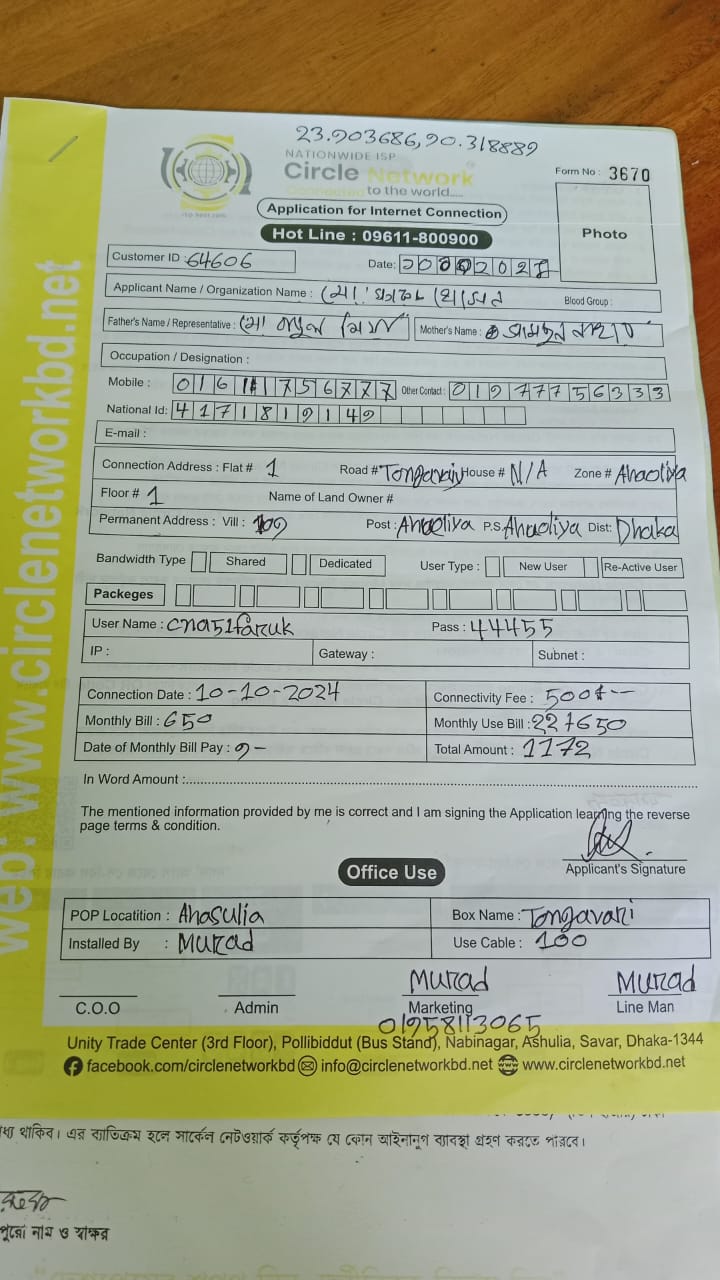 23.903686,90.318889
NATIONWIDE ISP
Circle Network
Connected to the world....
ISO 9001:2015
Form No : 3670
Application for Internet Connection
Photo
Hot Line : 09611-800900
Customer ID : 64606 Date:
Applicant Name / Organization Name : Blood Group :
Father's Name / Representative : Mother's Name :
Occupation / Designation :
Mobile : Other Contact : 01977756333
National Id: 4171819149
E-mail :
Connection Address : Flat # 1 Road # House # N/A Zone #
Floor # 1 Name of Land Owner #
Permanent Address : Vill : Post : P.S. Dist: Dhaka
Bandwidth Type Shared Dedicated User Type : New User Re-Active User
Packeges
User Name : cna51faruk Pass : 44455
IP : Gateway : Subnet :
Connection Date : 10-10-2024 Connectivity Fee : 500
Monthly Bill : 650 Monthly Use Bill :
Date of Monthly Bill Pay : Total Amount : 1172
In Word Amount :
The mentioned information provided by me is correct and I am signing the Application learning the reverse
page terms & condition.
Applicant's Signature
Office Use
POP Locatition : Ahasulia Box Name : Tongavari
Installed By : Murad Use Cable : 100
Murad Murad
C.O.O Admin Marketing Line Man
01958113065
Unity Trade Center (3rd Floor), Pollibiddut (Bus Stand), Nabinagar, Ashulia, Savar, Dhaka-1344
facebook.com/circlenetworkbd info@circlenetworkbd.net www.circlenetworkbd.net
web: www.circlenetworkbd.net
থাকিব। এর ব্যতিক্রম হলে সার্কেল নেটওয়ার্ক কর্তৃপক্ষ যে কোন আইনানুগ ব্যবস্থা গ্রহণ করতে পারবে।
পুরো নাম ও স্বাক্ষর